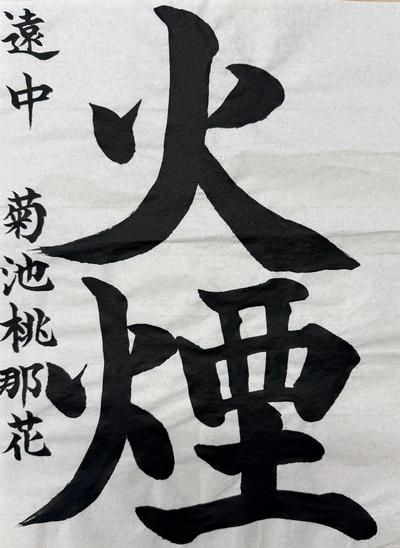 火煙
遠中 菊池桃那花